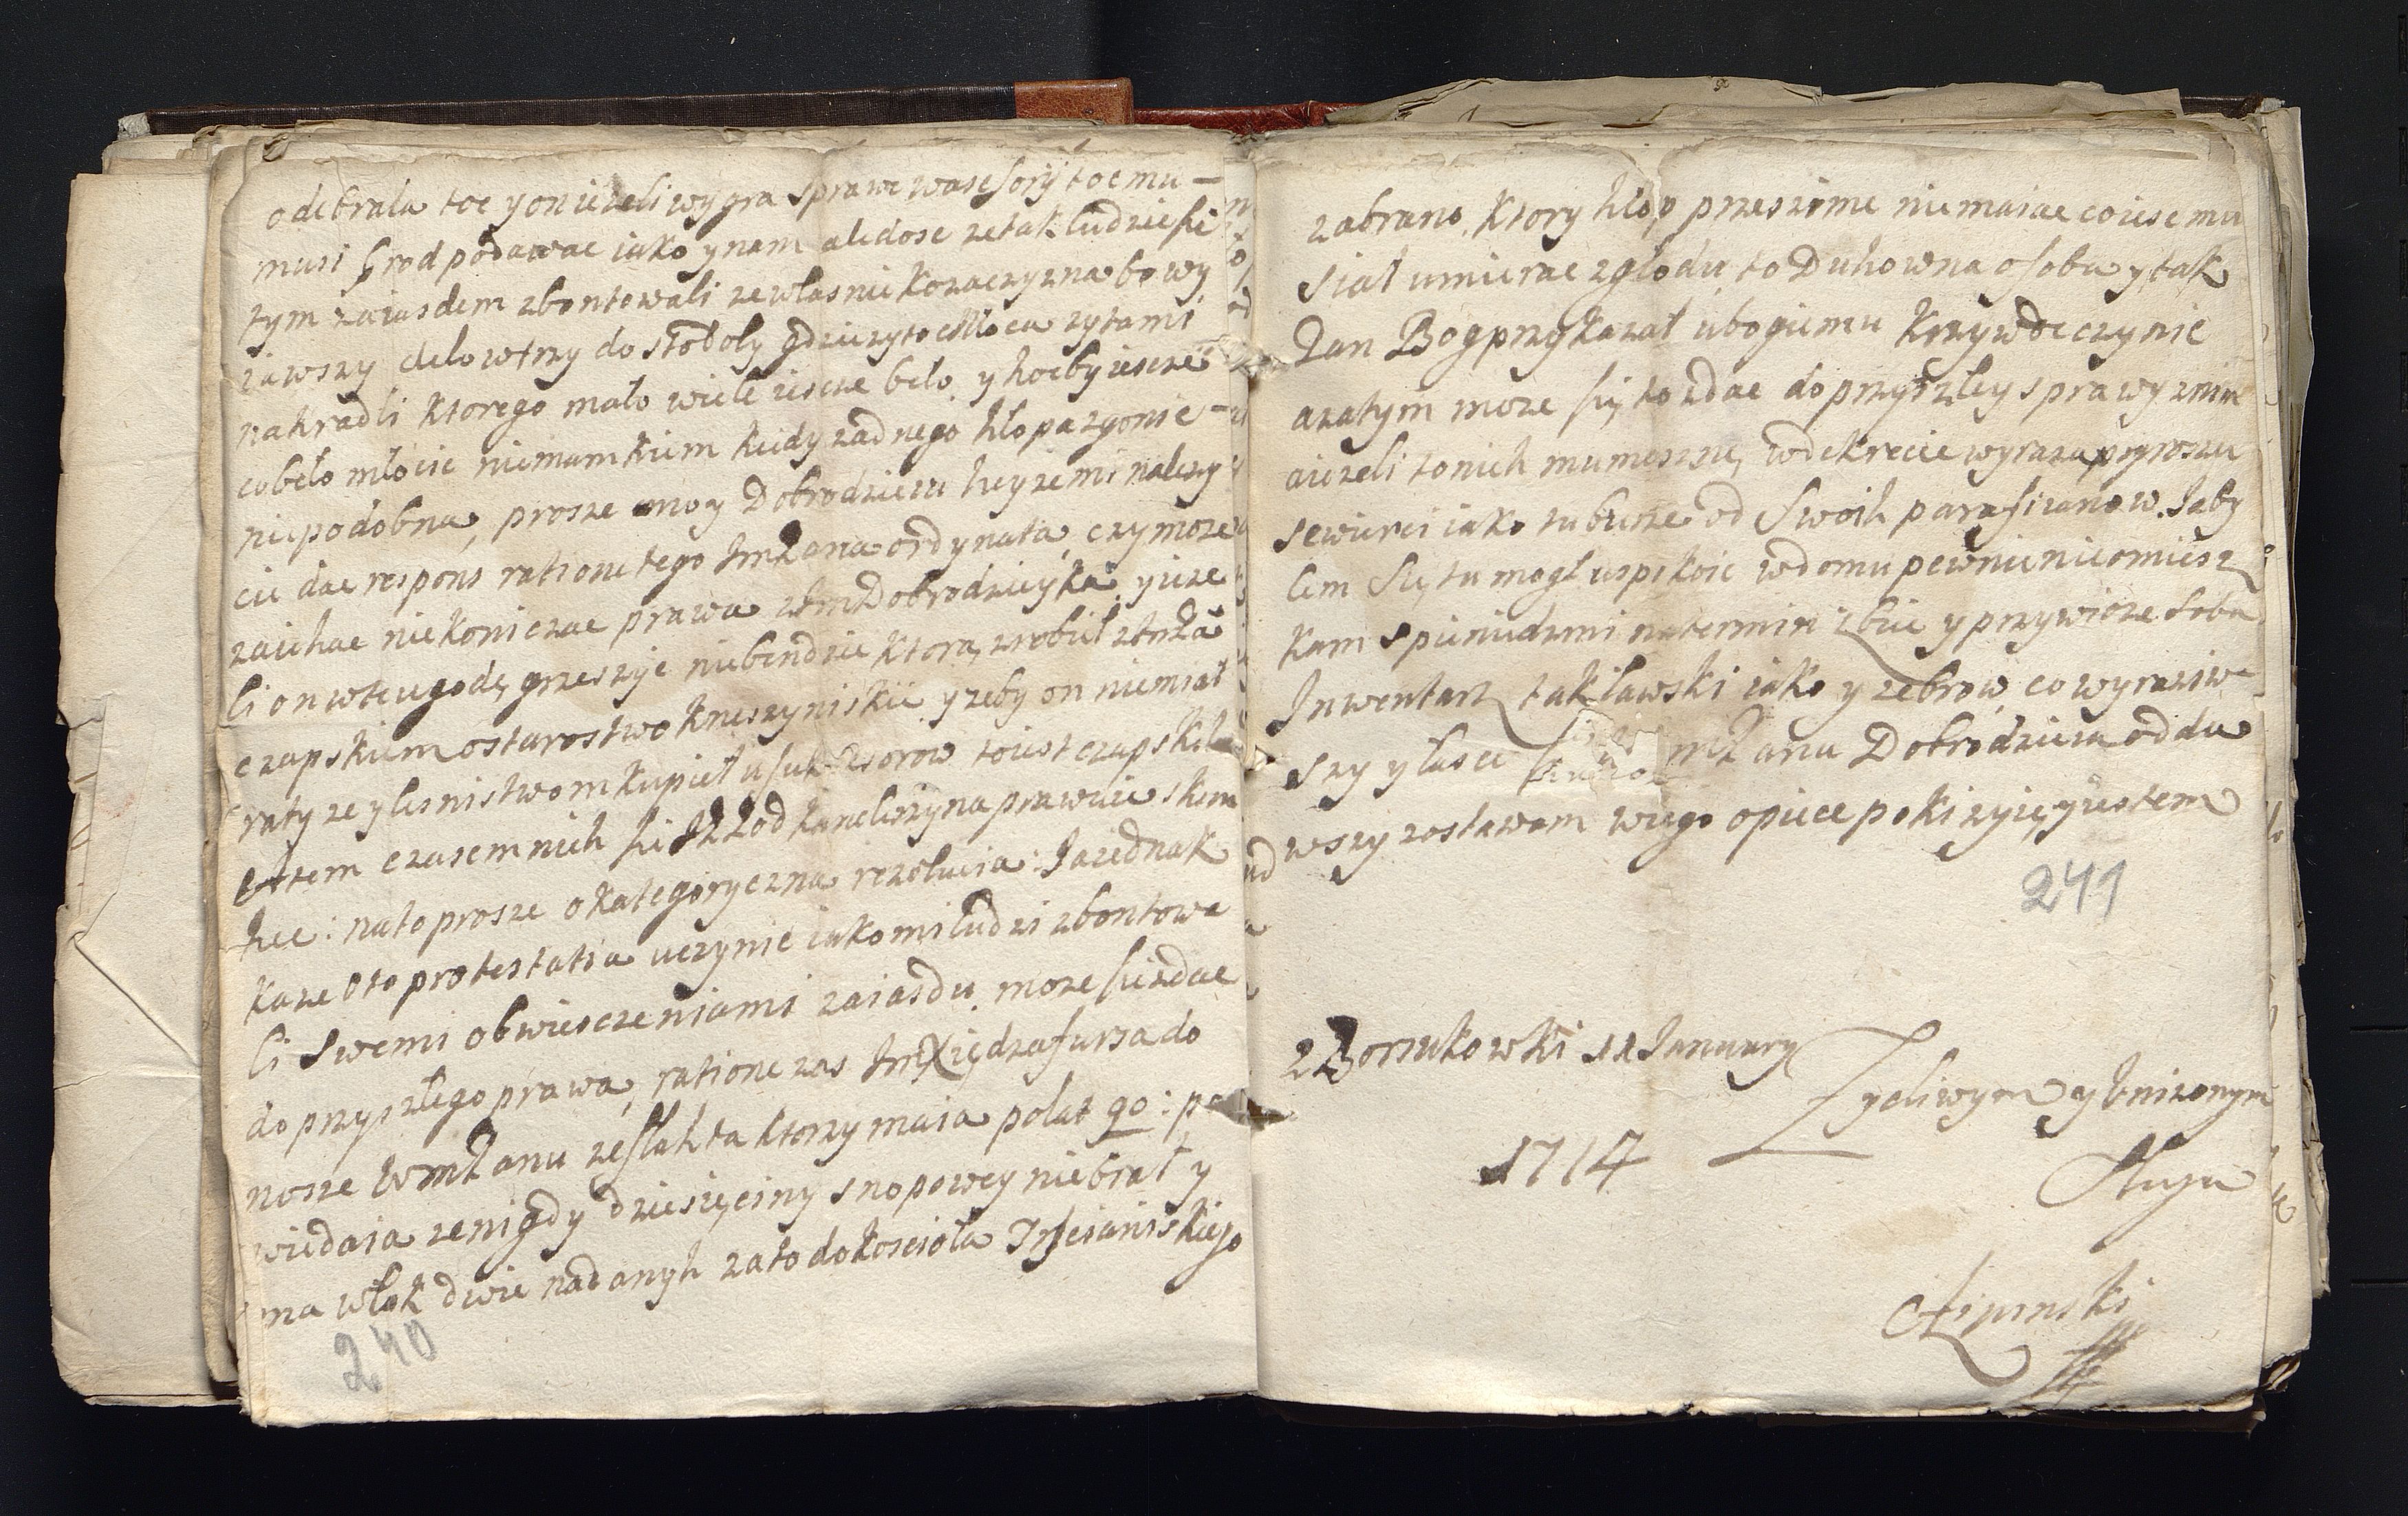 odebrala toc y on ieżeli wygra sprawe w asesoryi toc mu –
musi grod podawac iako y nam ale dosc ze tak ludzie sie
tym zaiasdem zbontowali ze wlasnie Kozaczyzna bo wy
iawszy delo wtrzy do stodoly gdzie zyto cmloca zyta mi
nakradli Ktorego malo wiele iescze beło y hocby iescze
co beło młócic nie mam kiem kiedy zadnego hłopa zgonic –
niepodobna, prosze moy Dobrodzieiu hey ze mi nalezy
cie dac respons ratione tego ImPana ordynata, czy moze
zaiehac nie konczac prawa z ImDobrodzieyka y ieze
li on w te ugodę grzeszyc niebendzie Ktora zrobił z ImPa
czapskiem o starostwo kneszyniskie y zeby on niemiał
raty ze y lesnistwom kupieł u sukcesorow to iest czapskih
potem czasem nich sie od kaneliszyna prawuie skem
hce: na to prosze o kategoryczna rezolucia: Ja iednak
kaze o to protestatia uczynic iako mi ludzi zbontowa
li swemi obwiesczeniami zaiasdu, moze sie zdac
do przyszłego prawa, ratione zas ImXiędza fursa do
nosze WmPanu ze slahta ktorzy maia polat 90: po
wiedaia ze nigdy dziesięciny snopowey niebrał y
ma włok dwie nadanyh za to do kosciola Trsciańskiego
240
zabrano, Ktory hłop przes zime nie maiac co iesc mu
siał umierac zgłodu, to Duhowna osoba y tak
Pan Bog przykazał ubogiemu Krzywde czynic
a zatym moze się to zdac do przyszley sprawy znim
a iezeli to nieh mu mosznę w dekrecie wyraza po groszu
sewierci iako tu bierze od Swoih parafiianow. Ja by
lem Się tu mogł uspokoic w domu pewnie nieomiesz
Kam s pieniedzmi na termin zbiec y przywioze soba
Inwentarz tak ławski iako y zebrow, co wyraziw
szy y łasce mPana Dobrodzieia odda
wszy zostawam w iego opiece poki zyię y iestem
241
z Borsukowki 11 January
1714
Zycliwym y Unizonym
Sługa
Lipinski